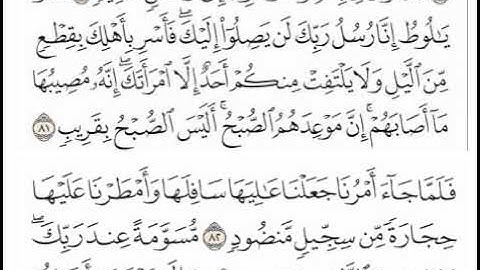 يَٰلُوطُ إِنَّا رُسُلُ رَبِّكَ لَن يَصِلُوٓا۟ إِلَيْكَ ۖ فَأَسْرِ بِأَهْلِكَ بِقِطْعٍ
مِّنَ ٱلَّيْلِ وَلَا يَلْتَفِتْ مِنكُمْ أَحَدٌ إِلَّا ٱمْرَأَتَكَ ۖ إِنَّهُۥ مُصِيبُهَا
مَآ أَصَابَهُمْ ۚ إِنَّ مَوْعِدَهُمُ ٱلصُّبْحُ ۚ أَلَيْسَ ٱلصُّبْحُ بِقَرِيبٍ ٨١
فَلَمَّا جَآءَ أَمْرُنَا جَعَلْنَا عَٰلِيَهَا سَافِلَهَا وَأَمْطَرْنَا عَلَيْهَا
حِجَارَةً مِّن سِجِّيلٍ مَّنضُودٍ ٨٢ مُّسَوَّمَةً عِندَ رَبِّكَ ۖ